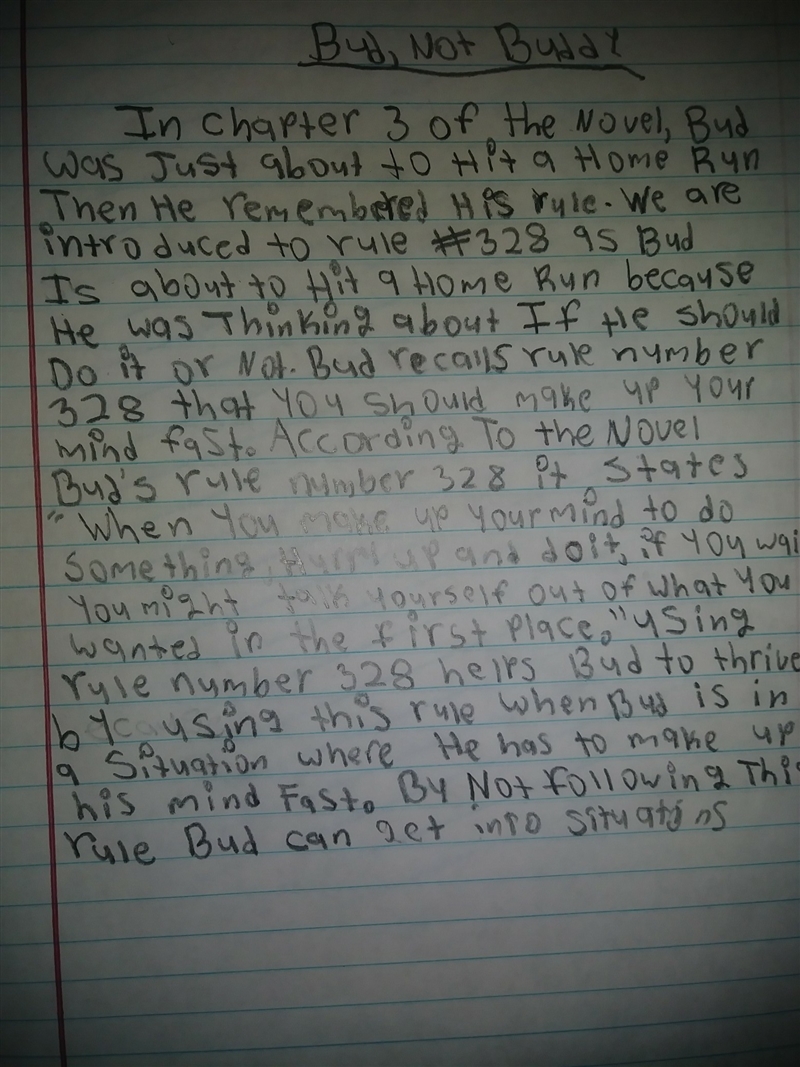 Bud, Not Buddy
In chapter 3 of the Novel, Bud
was Just about to Hit a Home Run
Then He remembered His rule. We are
introduced to rule #328 as Bud
Is about to Hit a Home Run because
He was Thinking about If He should
Do it or Not. Bud recalls rule number
328 that you should make up your
mind fast. According To the Novel
Bud's rule number 328 it states
"When You make up your mind to do
something, Hurry up and do it, if you wai
You might talk yourself out of what you
wanted in the first place." using
rule number 328 helps Bud to thrive
by using this rule when Bud is in
a situation where He has to make up
his mind Fast. By Not following This
rule Bud can get into situations